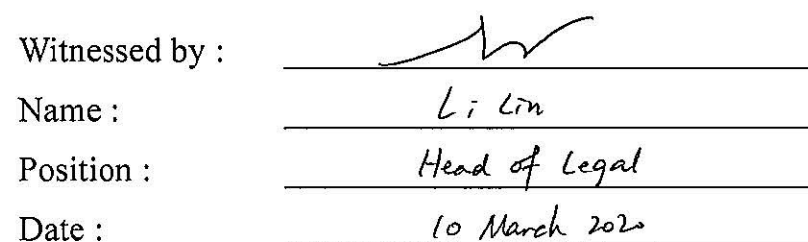 Witnessed by :
Name : Li Lin
Position : Head of Legal
Date : 10 March 2020